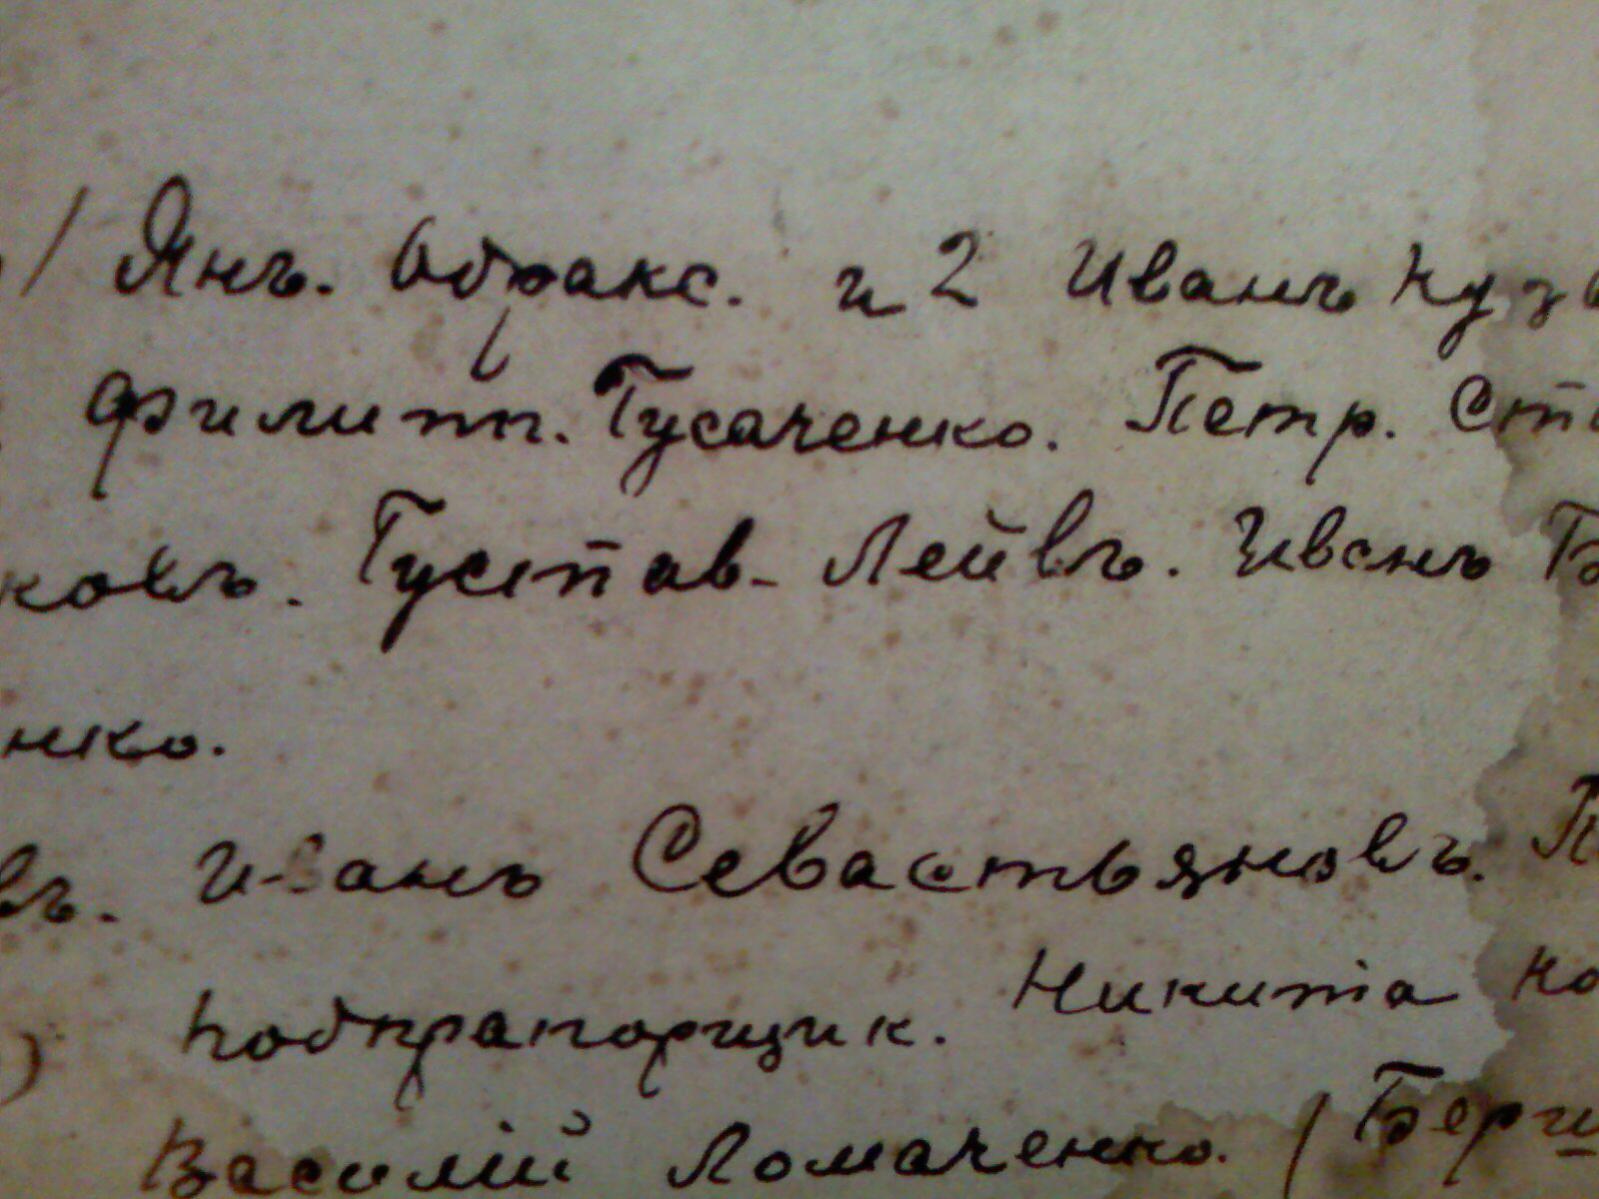 / Янъ. Обракс. и 2 Иванъ Куз
Филипп. Гусаченко. Петр. Ст
ковъ. Густав- Лейвъ. Иванъ Б
нко.
въ. Иванъ Севастьяновъ. П
Подпрапорщик. Никита Ко
Василій Ломаченко. / Берги